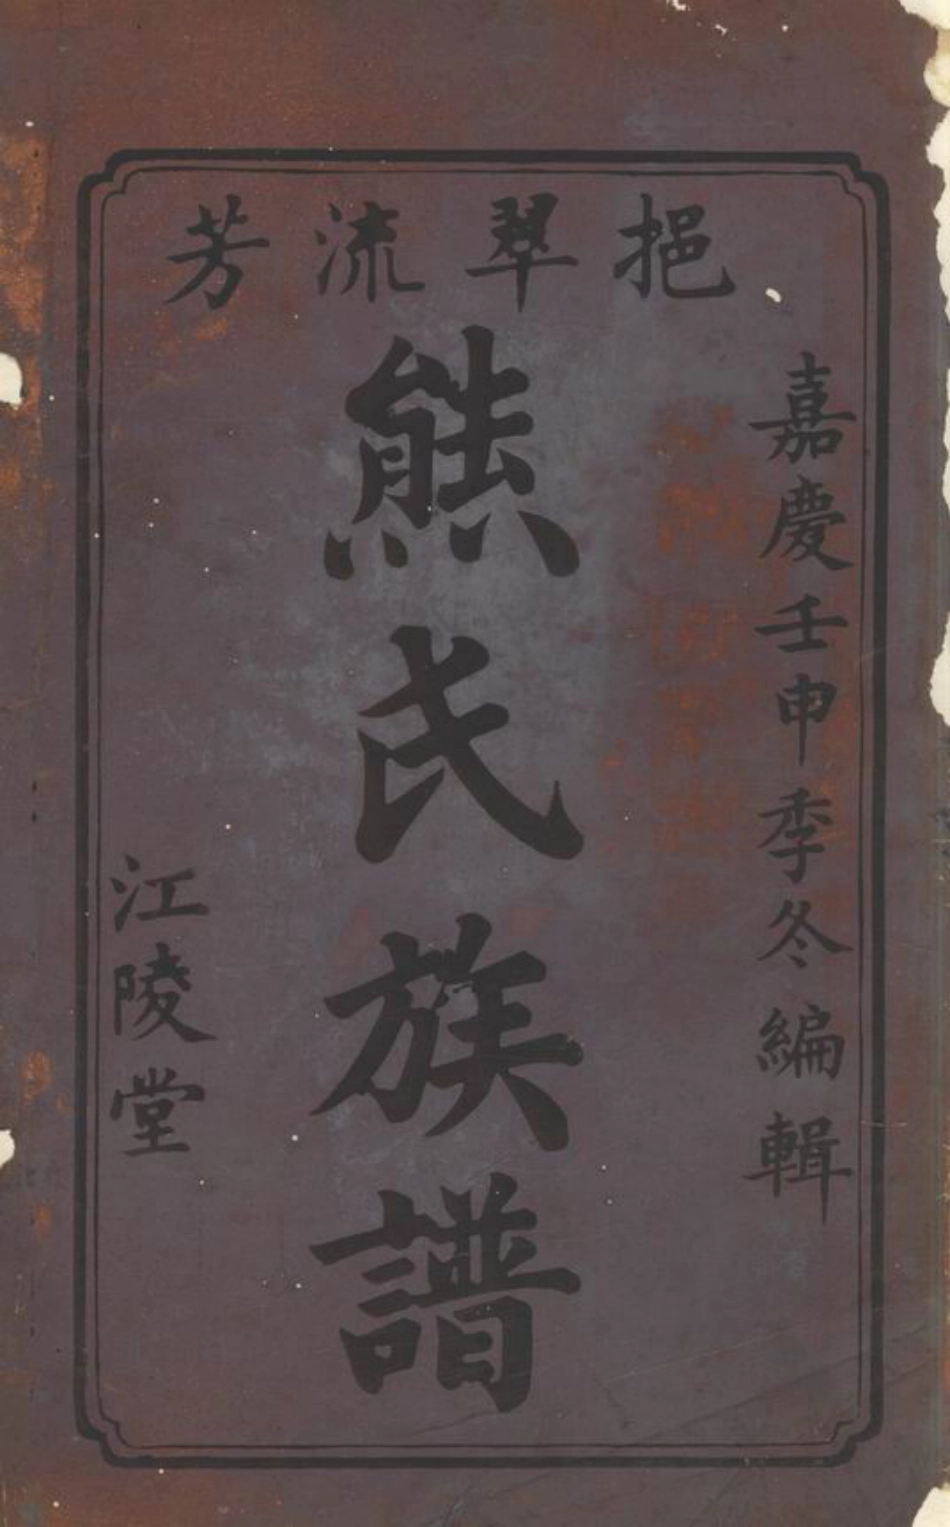 挹翠流芳
嘉慶壬申季冬編輯
熊氏族譜
江陵堂